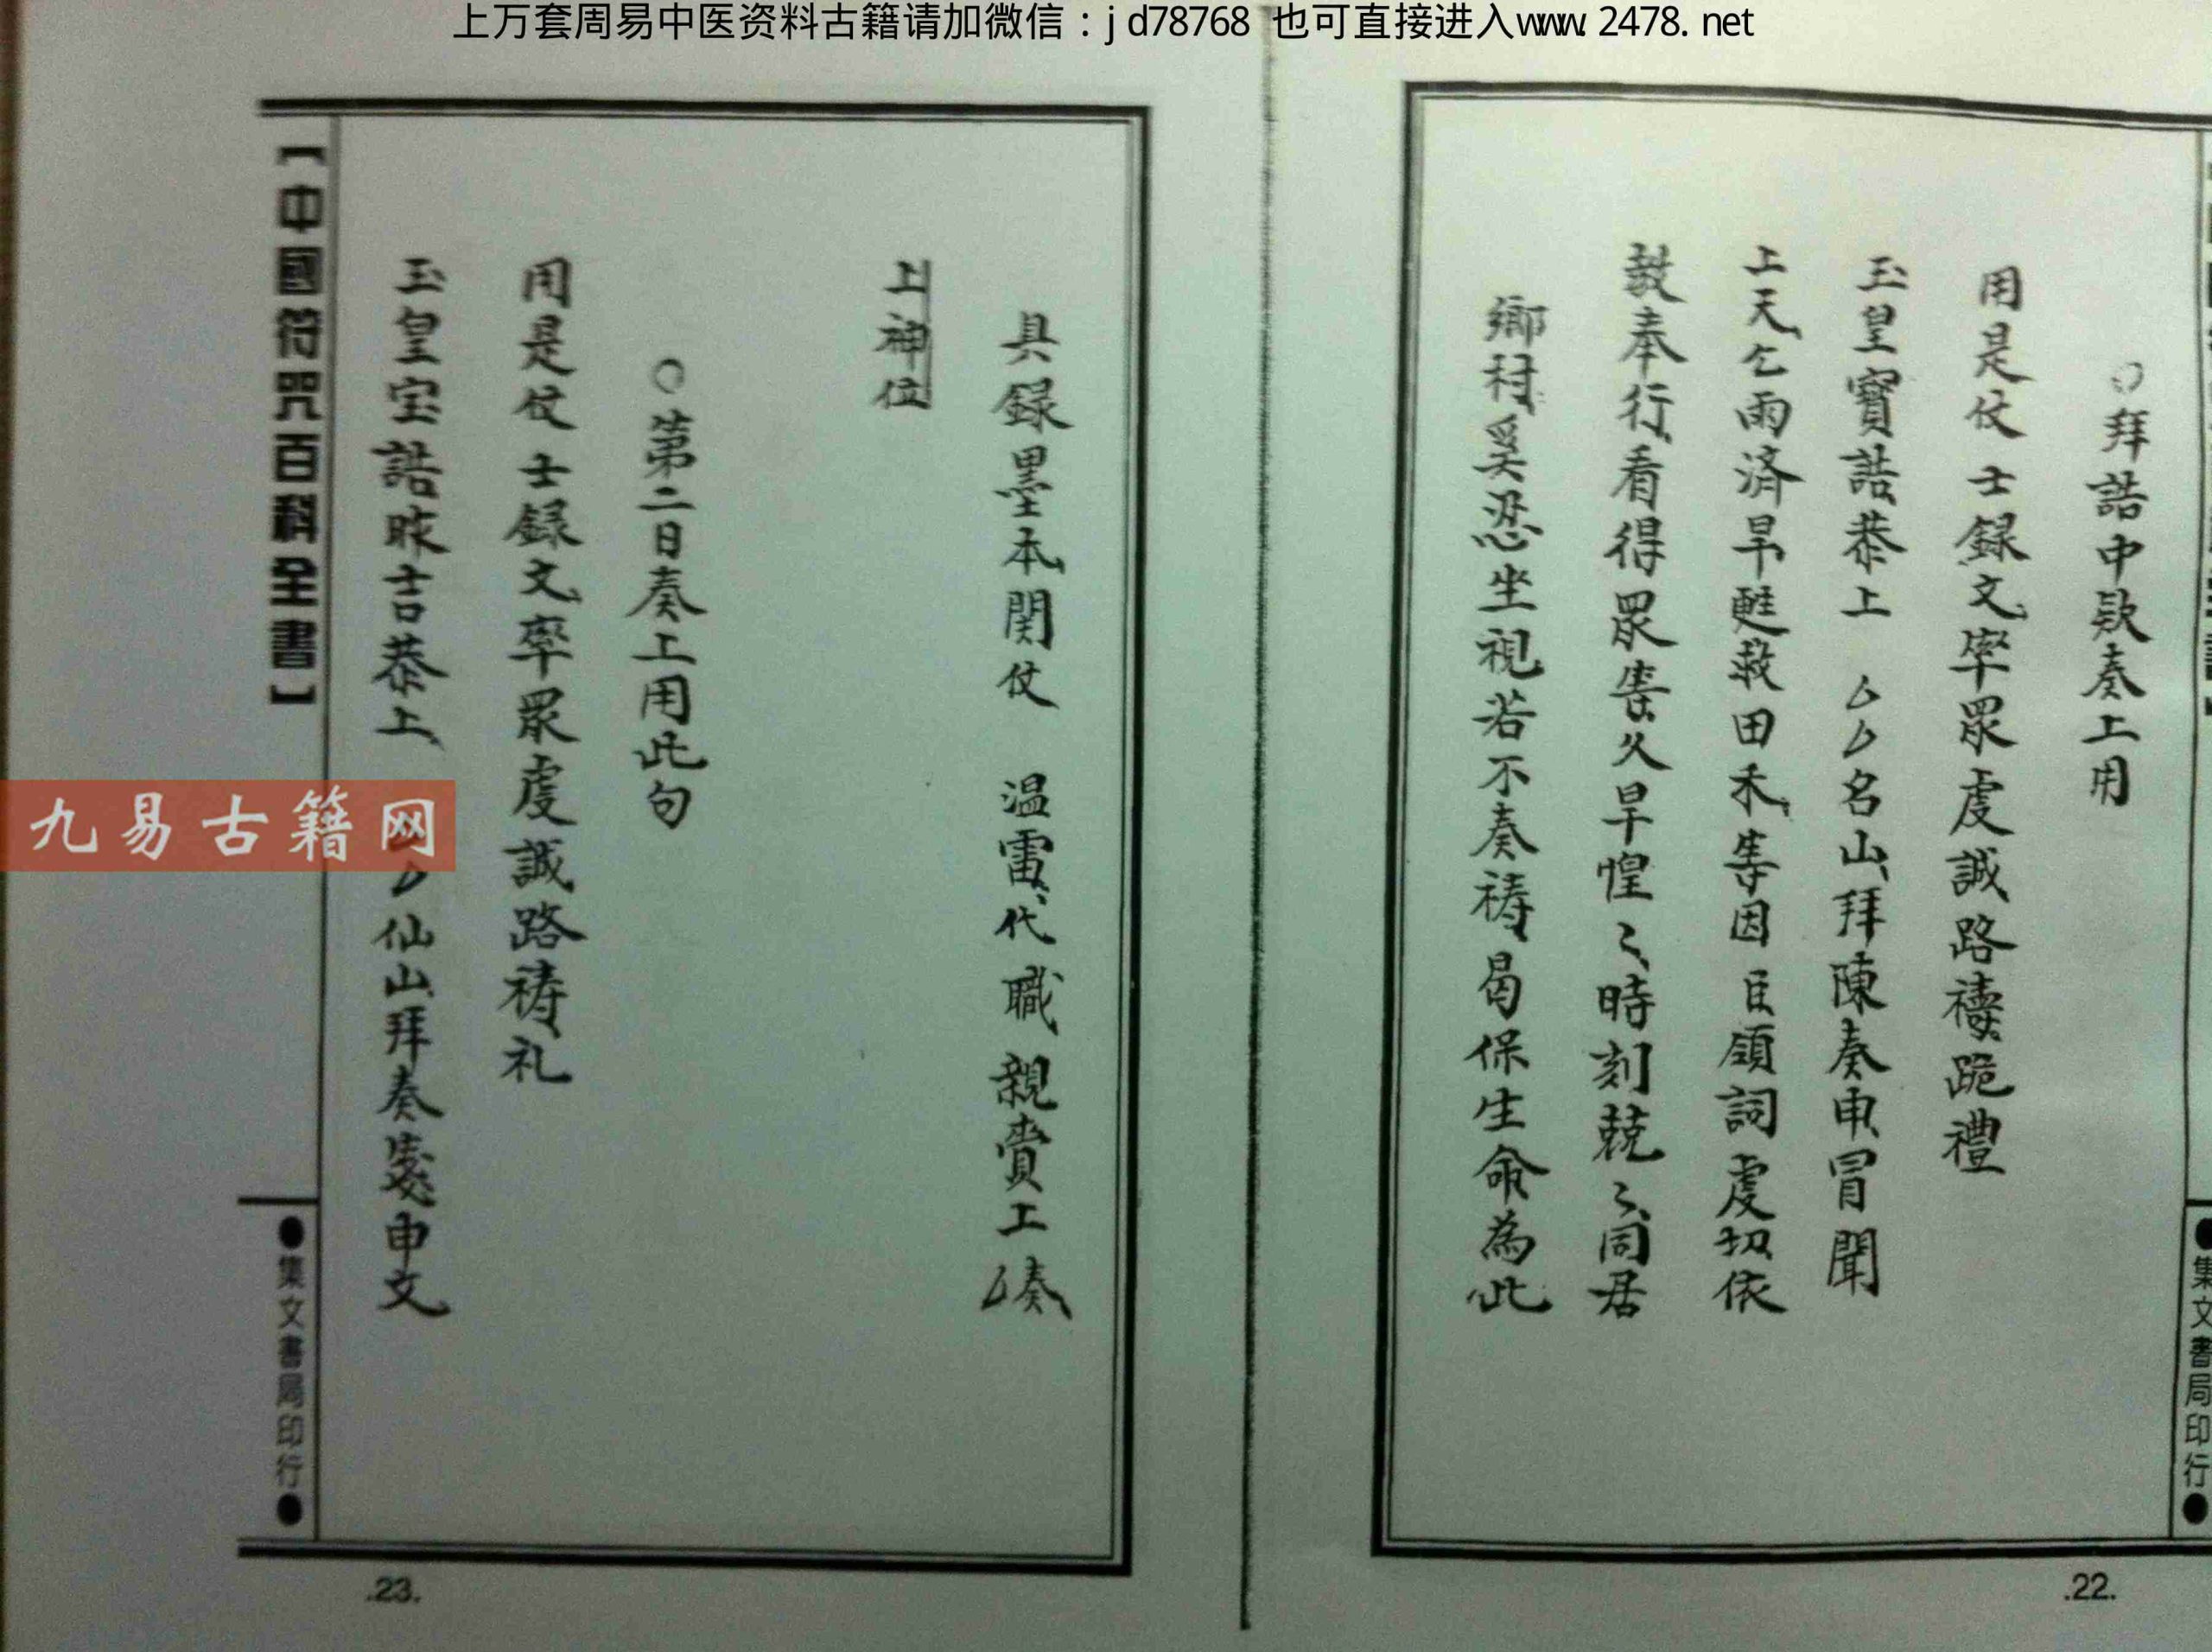 上万套周易中医资料古籍请加微信：jd78768 也可直接进入www.2478.net
○拜誥中欵奏上用
用是仗士録文率眾虔誠路禱跪禮
玉皇寳誥恭上ムム名山拜陳奏申冒聞
上天乞雨済旱甦救田禾等因臣領詞虔切依
教奉行看得眾等久旱惶〻時刻兢〻同居
鄉村奚忍坐視若不奏祷曷保生命為此
集文書局印行●
.22.
具録墨本関仗 温雷代職親賫上奏
上神位
○第二日奏上用此句
用是仗士録文率眾虔誠路祷礼
玉皇宝誥昩吉恭上ム仙山拜奏箋申文
【中國符咒百科全書】
●集文書局印行●
.23.
九易古籍网